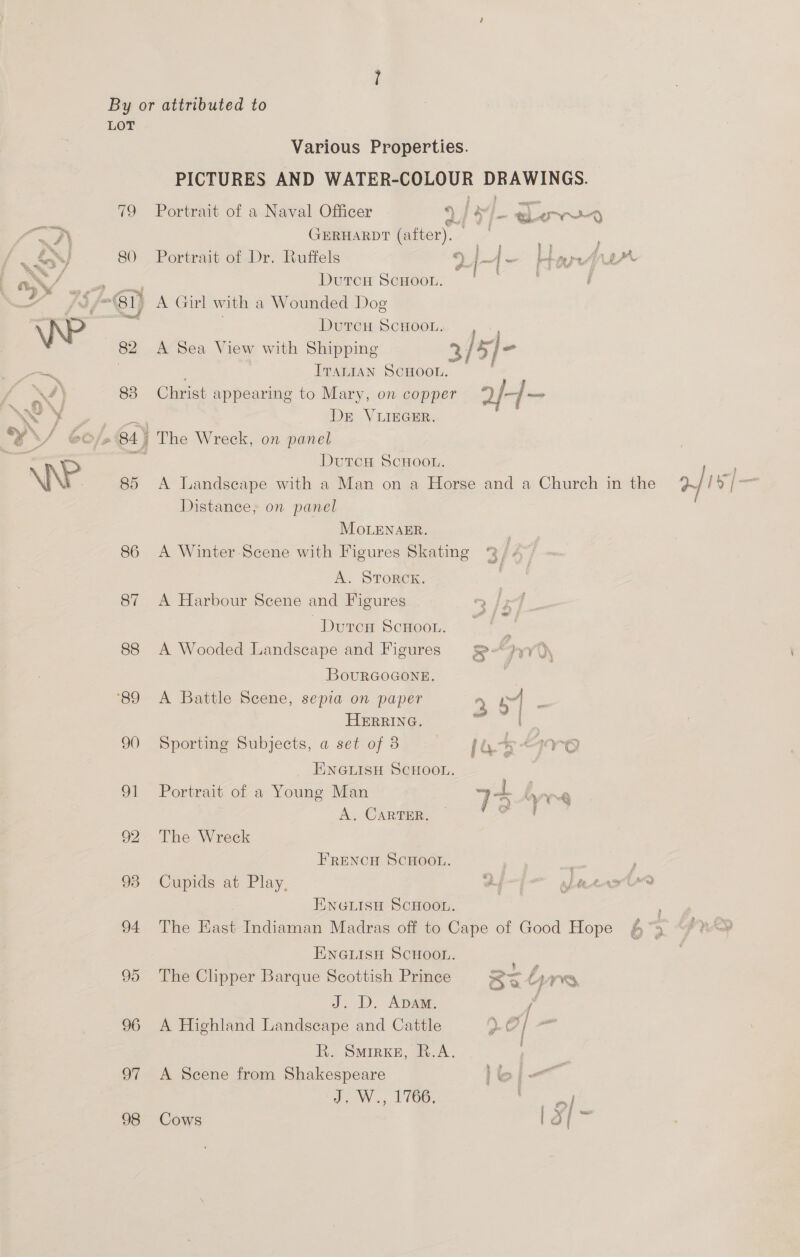 7
By or attributed to
LOT
Various Properties.
PICTURES AND WATER-COLOUR DRAWINGS.
79 Portrait of a Naval Officer
GERHARDT (after).
80 Portrait of Dr. Ruffels 2/-/-
DUTCH SCHOOL.
81 A Girl with a Wounded Dog
DUTCH SCHOOL.
82 A Sea View with Shipping 2/5/-
ITALIAN SCHOOL.
83 Christ appearing to Mary, on copper 2/-/-
DE VLIEGER.
60/- 84 The Wreck, on panel
DUTCH SCHOOL.
85 A Landscape with a Man on a Horse and a Church in the 2/15/-
Distance, on panel
MOLENAER.
86 A Winter Scene with Figures Skating
A. STORCK.
87 A Harbour Scene and Figures
DUTCH SCHOOL.
88 A Wooded Landscape and Figures
BOURGOGONE.
89 A Battle Scene, sepia on paper
HERRING.
90 Sporting Subjects, a set of 3
ENGLISH SCHOOL.
91 Portrait of a Young Man
A. CARTER.
92 The Wreck
FRENCH SCHOOL.
93 Cupids at Play,
ENGLISH SCHOOL.
94 The East Indiaman Madras off to Cape of Good Hope
ENGLISH SCHOOL.
95 The Clipper Barque Scottish Prince
J. D. ADAM.
96 A Highland Landscape and Cattle
R. SMIRKE, R.A.
97 A Scene from Shakespeare 16/-
J. W., 1766.
98 Cows 18/-